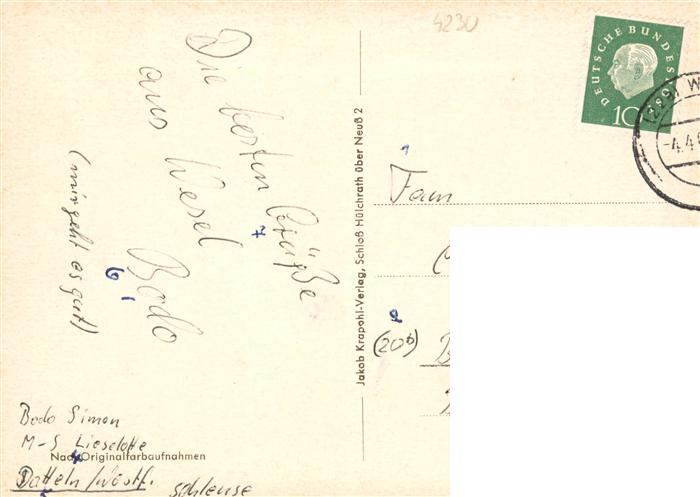 4230
DEUTSCHE BUNDESPOST
10
(22a) W
-4.4
Die besten Grüße
aus Wesel
Bodo
(mir geht es gut)
Jakob Krapohl-Verlag, Schloß Hülchrath über Neuß 2
Fam
(20b)
Bodo Simon
M-S Lieselotte
Nach Originalfarbaufnahmen
Datteln/Westf.
schleuse